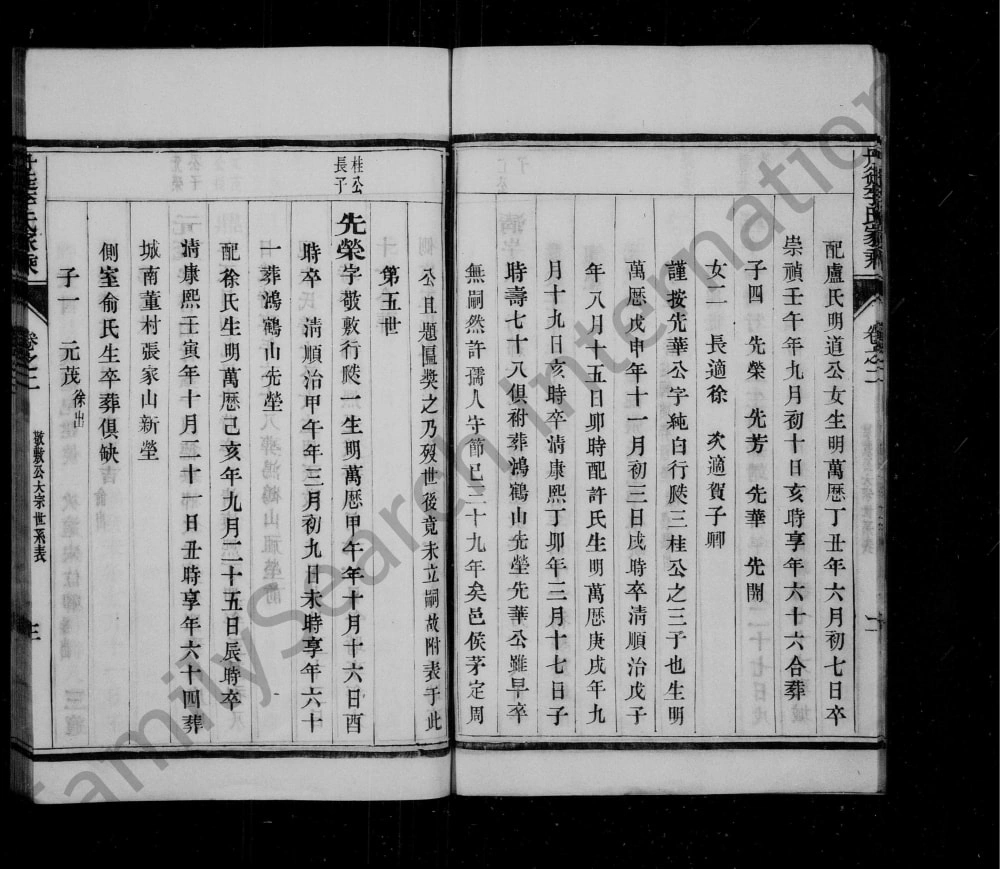 配盧氏明道公女生明萬曆丁丑年六月初七日卒
崇禎壬午年九月初十日亥時享年六十六合葬
子四 先榮 先芳 先華 先開
女二 長適徐 次適賀子卿
謹按先華公字純白行陞三桂公之三子也生明
萬曆戊申年十一月初三日戌時卒清順治戊子
年八月十五日卯時配許氏生明萬曆庚戌年九
月十九日亥時卒清康熙丁卯年三月十七日子
時壽七十八俱祔葬鴻鶴山先塋先華公雖早卒
無嗣然許孺人守節已三十九年矣邑侯茅定周
公且題匾獎之乃歿世後竟未立嗣故附表于此
第五世
桂公長子
先榮字敬敷行陞一生明萬曆甲午年十月十六日酉
時卒 清順治甲午年三月初九日未時享年六十
一葬鴻鶴山先塋
配徐氏生明萬曆己亥年九月二十五日辰時卒
清康熙壬寅年十月二十一日丑時享年六十四葬
城南董村張家山新塋
側室俞氏生卒葬俱缺
子一 元茂 徐出
李氏家乘
卷之二
敬敷公大宗世系表
FamilySearch International